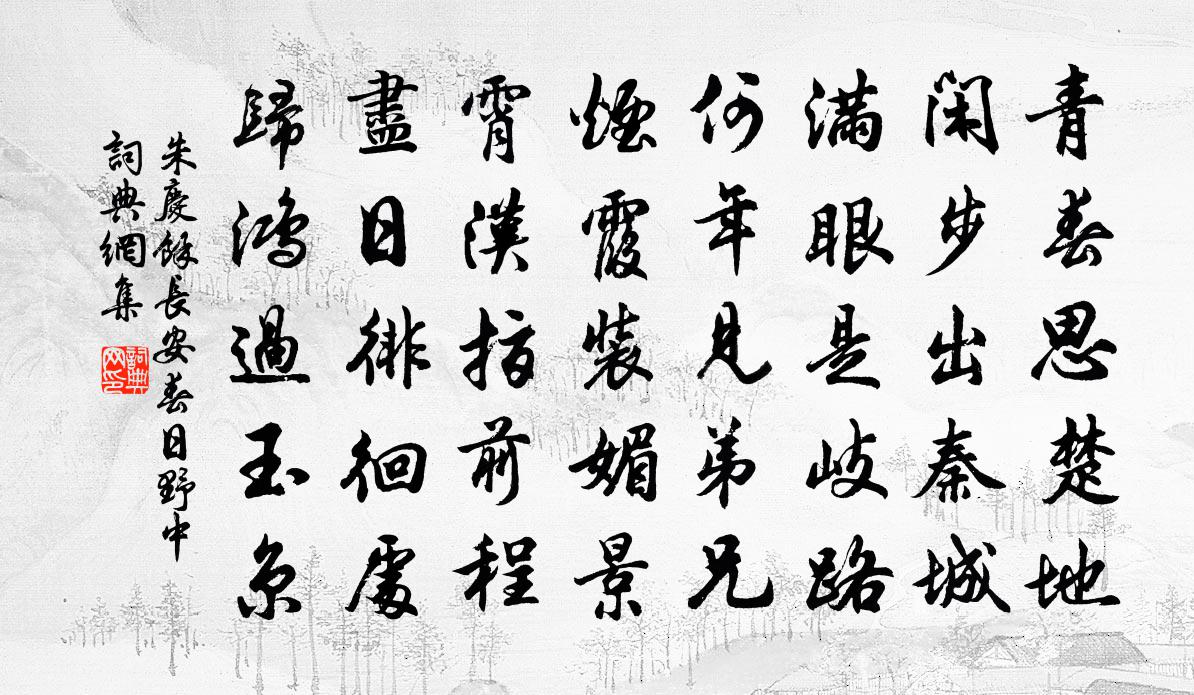 青春思楚地
閑步出秦城
滿眼是岐路
何年見弟兄
煙霞裝媚景
霄漢指前程
盡日徘徊處
歸鴻過玉京
朱慶餘長安春日野中
詞典網集
詞典網印